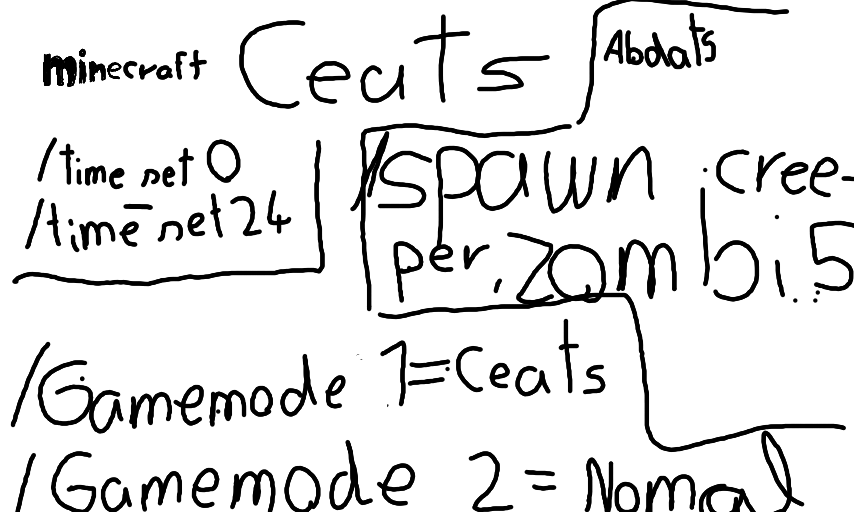 minecraft Ceats
Abdats
/time set 0
/time set 24
/spawn .cree-
per, zombi.5
/Gamemode 1=Ceats
/Gamemode 2=Nomal